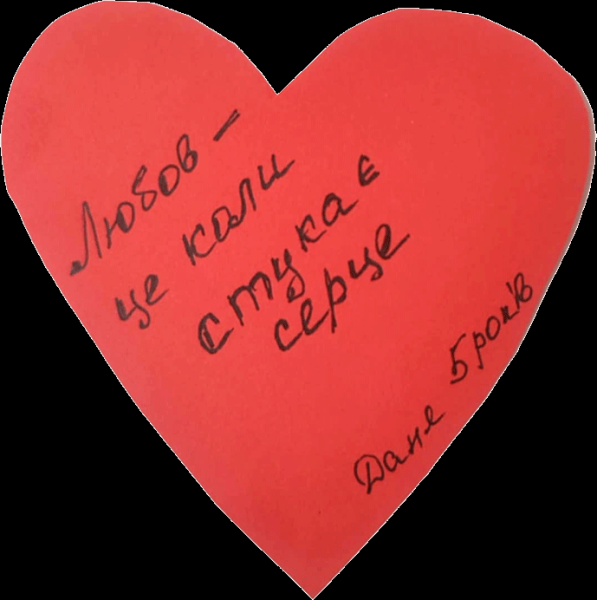 Любов -
це коли
стукає
серце
Даня 5 років